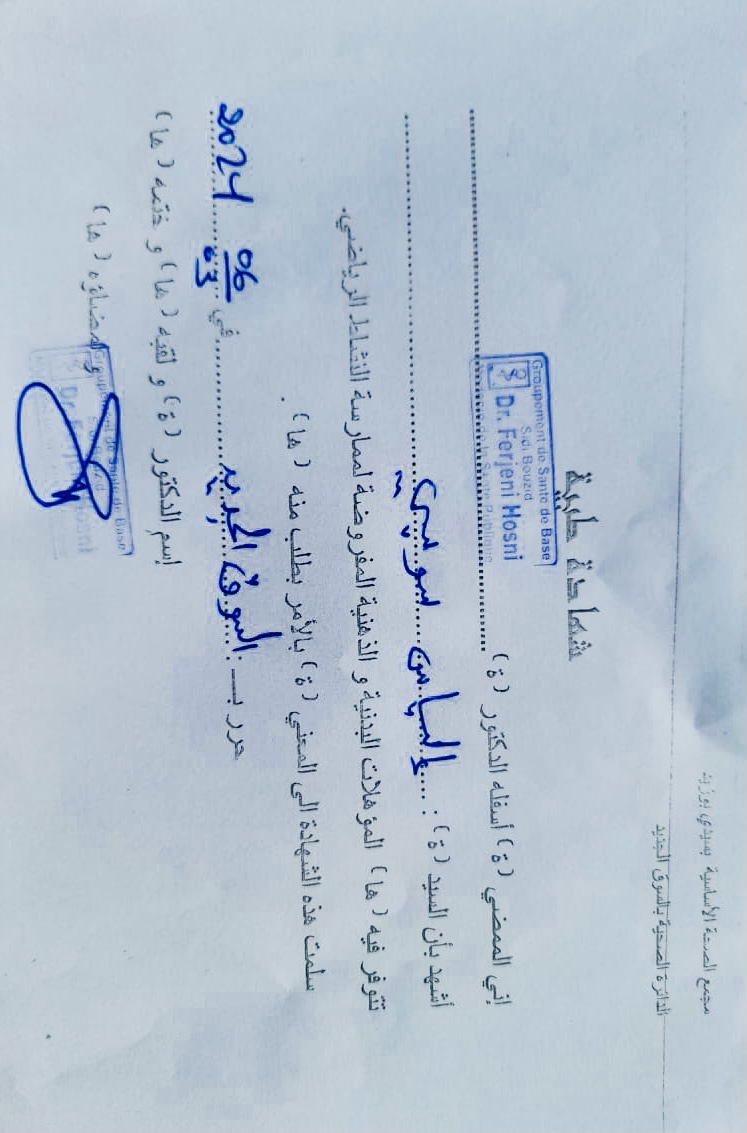 مجمع الصحة الأساسية بسيدي بوزيد
الدائرة الصحية بالسوق الجديد
شهادة طبية
Groupement de Santé de Base
Sidi Bouzid
Dr. Ferjeni Hosni
de la Santé Publique
إني الممضي (ة) أسفله الدكتور (ة)
أشهد بأن السيد (ة) : إلياس سويسي
تتوفر فيه (ها) المؤهلات البدنية و الذهنية المفروضة لممارسة النشاط الرياضي.
سلمت هذه الشهادة الى المعني (ة) بالأمر بطلب منه (ها) .
حرر بـ : السوق الجديد في 06/03 2024
إسم الدكتور (ة) و لقبه (ها) و ختمه (ها)
و إمضاؤه (ها)
Groupement de Santé de Base
Sidi Bouzid
Hosni